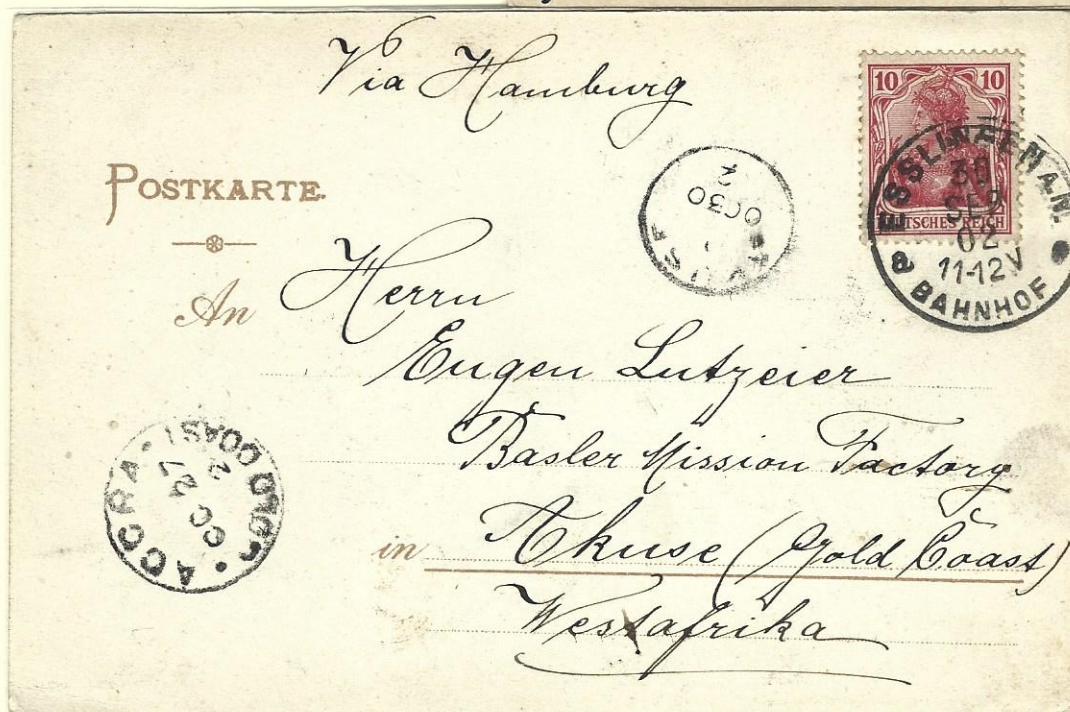 Via Hamburg
10 10
DEUTSCHES REICH
ESSLINGEN A.N.
30
SEP
02
11-12V
a BAHNHOF
POSTKARTE.
OC 30
2
An Herrn
Eugen Lutzeier
Basler Mission Factory
in Akuse (Gold Coast)
Westafrika
ACCRA
GOLD COAST
OC 27
2